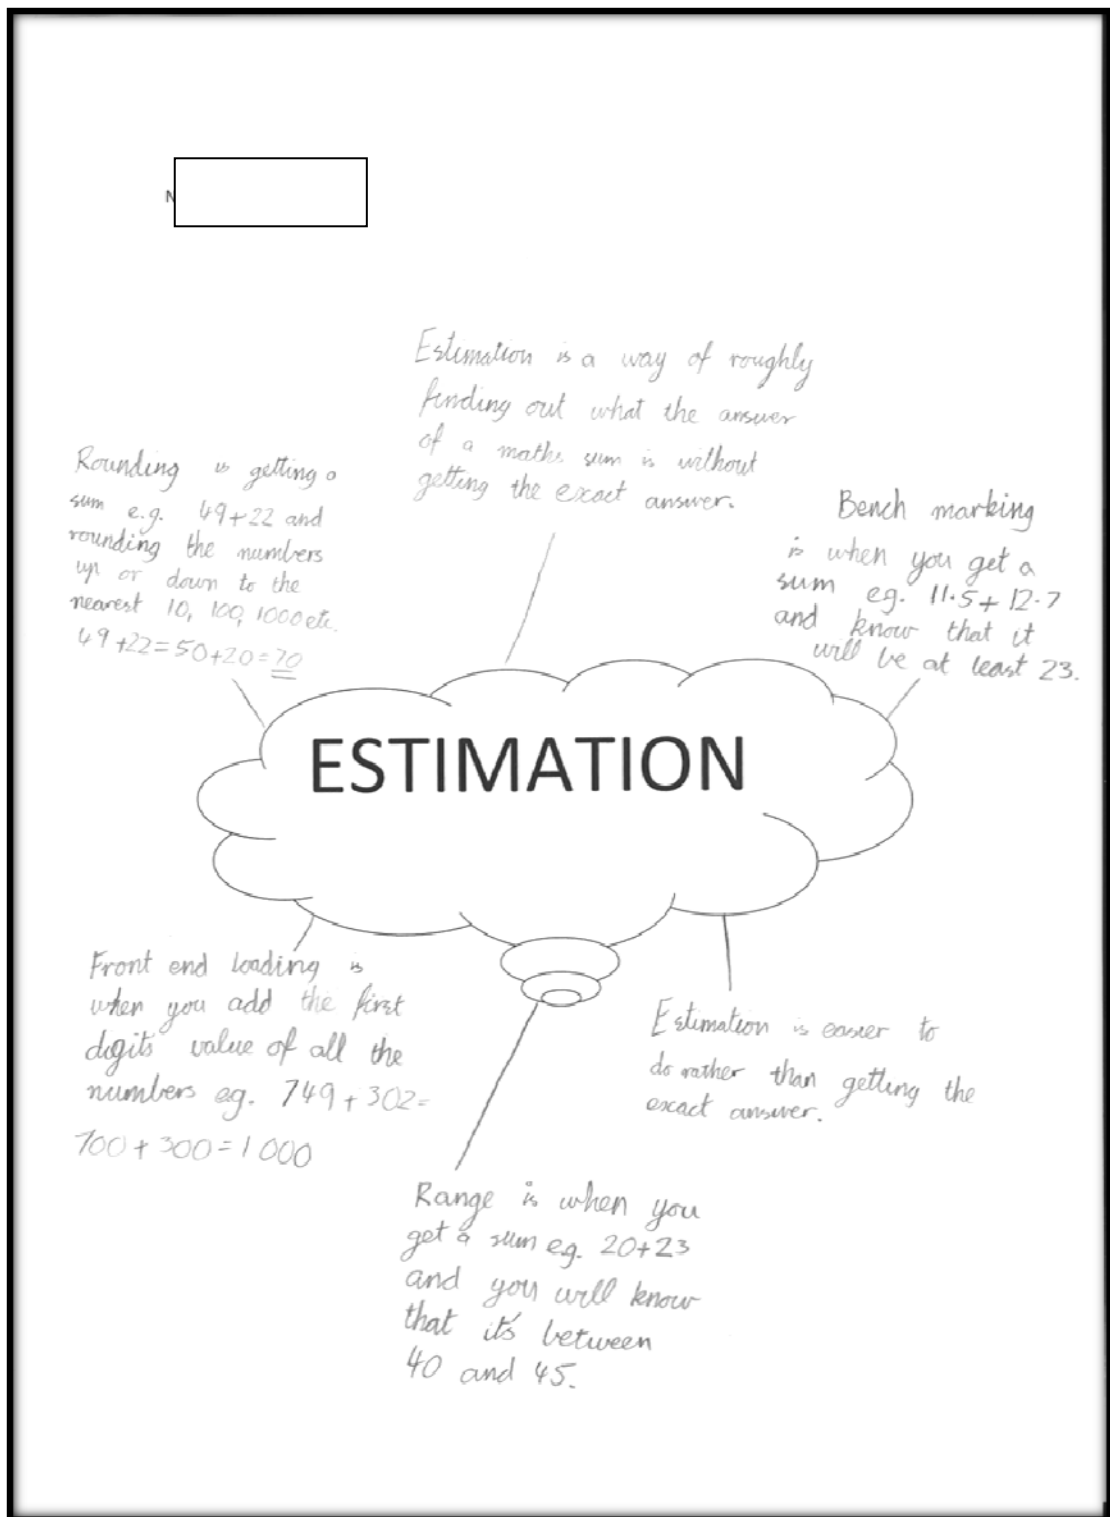 N
Estimation is a way of roughly
finding out what the answer
of a maths sum is without
getting the exact answer.
Rounding is getting a
sum e.g. 49+22 and
rounding the numbers
up or down to the
nearest 10, 100, 1000 etc.
49+22=50+20=70
Bench marking
is when you get a
sum eg. 11.5+12.7
and know that it
will be at least 23.
ESTIMATION
Front end loading is
when you add the first
digits' value of all the
numbers eg. 749+302=
700+300=1000
Estimation is easier to
do rather than getting the
exact answer.
Range is when you
get a sum eg. 20+23
and you will know
that it's between
40 and 45.